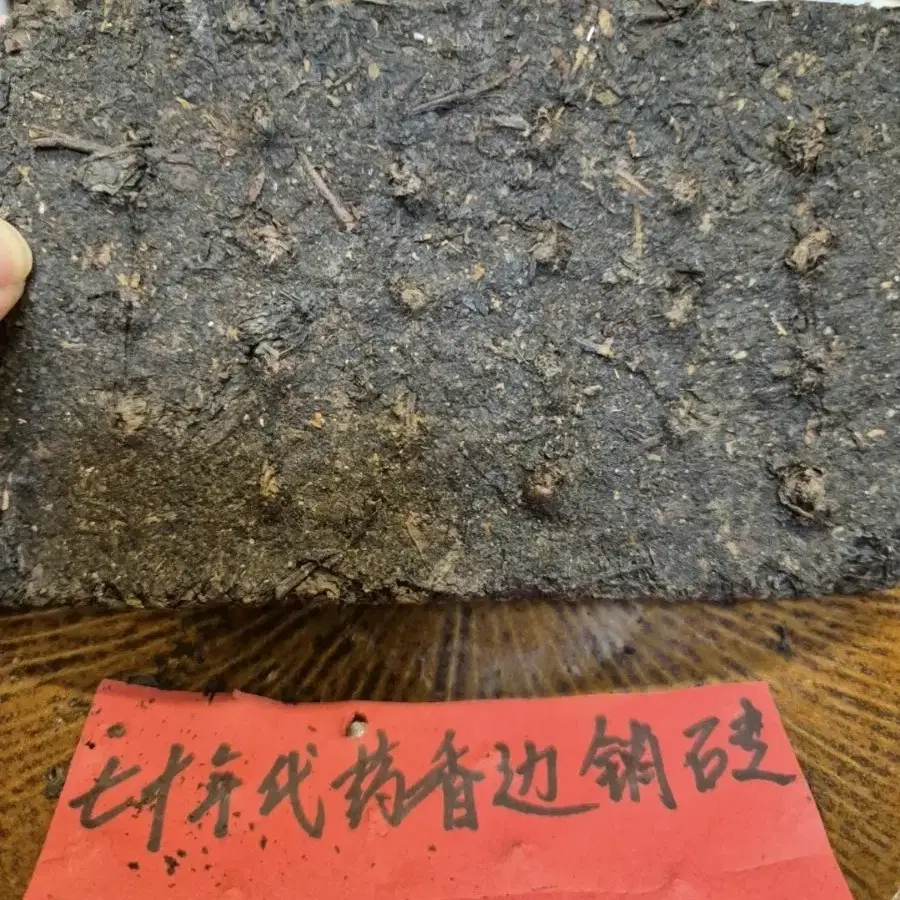 七十年代药香边销砖